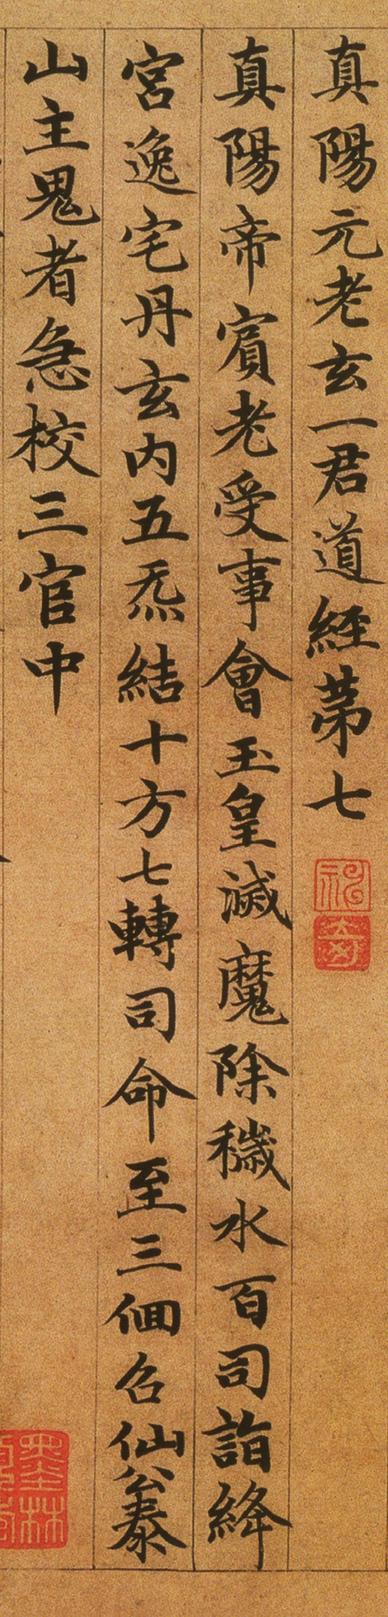 真陽元老玄一君道經第七
真陽帝賓老受事會玉皇滅魔除穢水百司詣絳
宮逸宅丹玄内五炁結十方七轉司命至三個召仙公泰
山主鬼者急校三官中